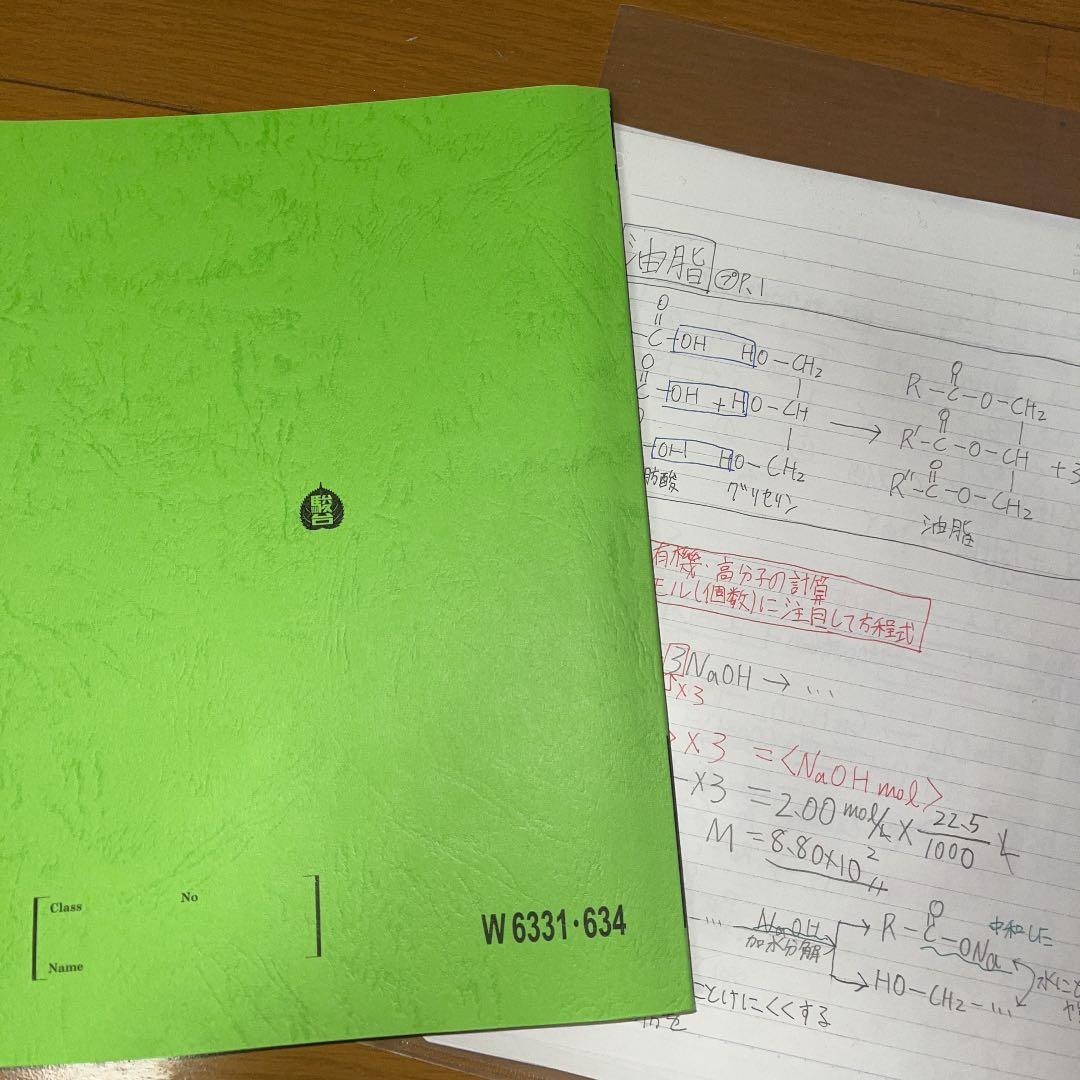 駿台
Class
No
Name
W 6331・634
油脂 ㋐P.1
O
C OH HO－CH₂
O
C OH + HO－CH
OH HO－CH₂
肪酸 グリセリン
→
O
R－C－O－CH₂
O
R'－C－O－CH + 3
O
R''－C－O－CH₂
油脂
有機・高分子の計算
モル(個数)に注目して方程式
3NaOH → …
×3
×3 = <NaOH mol>
×3 = 2.00 mol/L × 22.5/1000 L
M = 8.80×10²
… NaOH
加水分解
O
R－C－ONa
中和した
HO－CH₂－…
水にと
とけにくくする